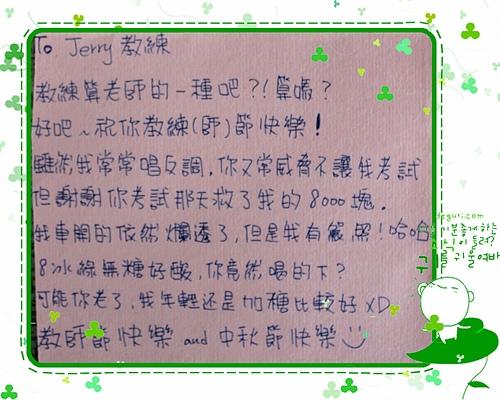 To Jerry 教練
教練算老師的一種吧?!算嗎?
好吧~祝你教練(師)節快樂!
雖然我常常唱反調,你又常威脅不讓我考試
但謝謝你考試那天救了我的8000塊.
我車開的依然爛透了,但是我有駕照!哈哈
8冰綠無糖好酸,你竟然喝的下?
可能你老了,我年輕還是加糖比較好 XD
教師節快樂 and 中秋節快樂